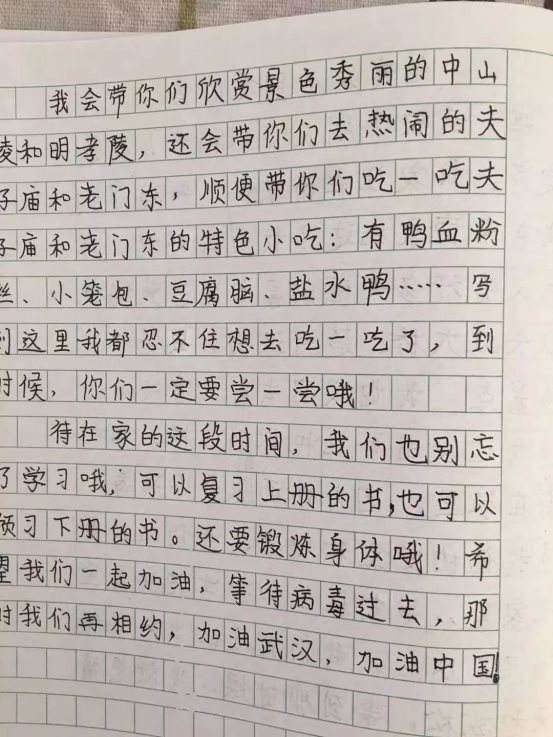 我会带你们欣赏景色秀丽的中山
陵和明孝陵，还会带你们去热闹的夫
子庙和老门东，顺便带你们吃一吃夫
子庙和老门东的特色小吃：有鸭血粉
丝、小笼包、豆腐脑、盐水鸭……写
到这里我都忍不住想去吃一吃了，到
时候，你们一定要尝一尝哦！
待在家的这段时间，我们也别忘
了学习哦，可以复习上册的书，也可以
预习下册的书。还要锻炼身体哦！希
望我们一起加油，等待病毒过去，那
时我们再相约，加油武汉，加油中国！